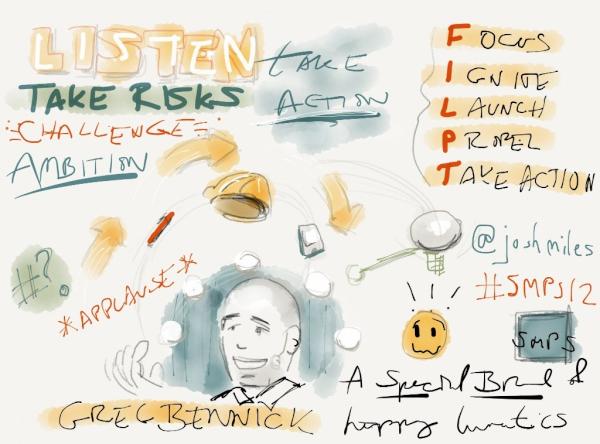 LISTEN
TAKE
ACTION
TAKE RISKS
CHALLENGE
AMBITION
FOCUS
IGNITE
LAUNCH
PROPEL
TAKE ACTION
@joshmiles
#SMPS12
#?.
*APPLAUSE*
! ! !
SMPS
GREG BENNICK
A Special Brand of
happy lunatics